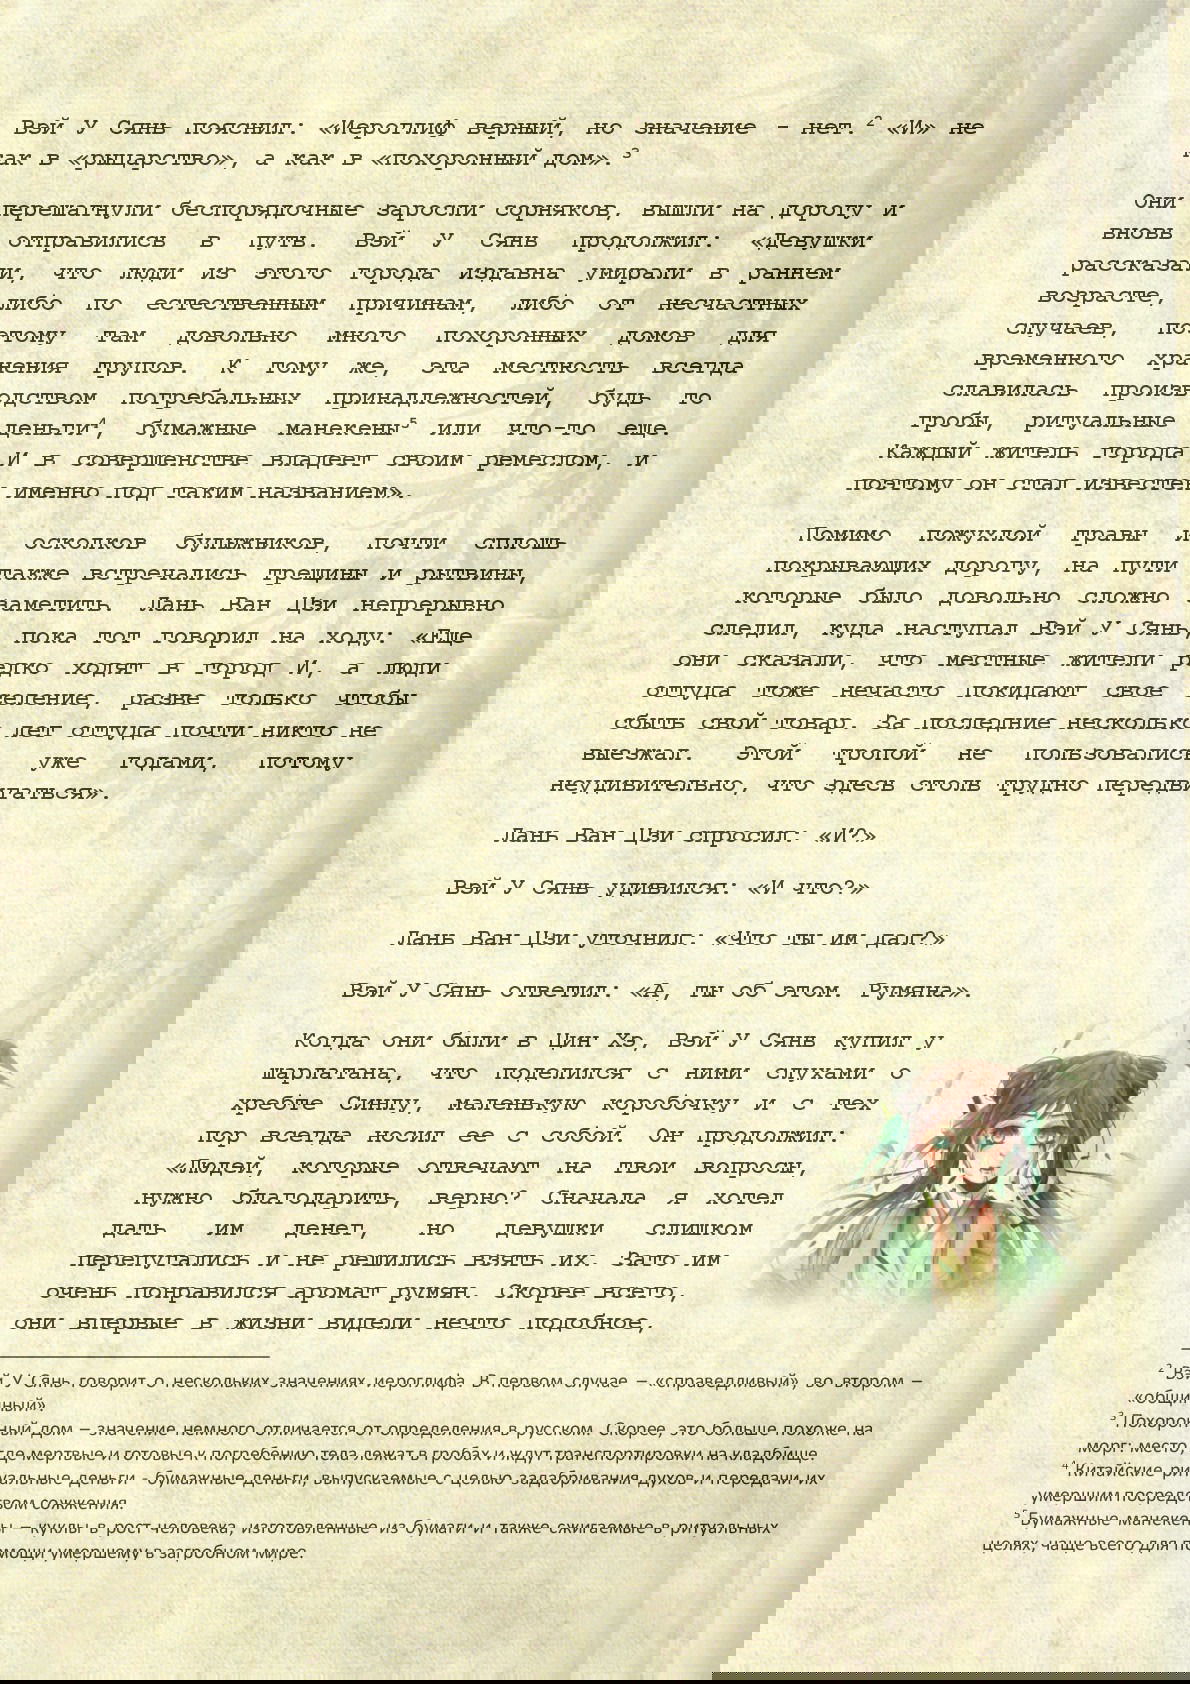 Вэй У Сянь пояснил: «Иероглиф верный, но значение – нет.² «И» не
как в «рыцарство», а как в «похоронный дом».³
Они перешагнули беспорядочные заросли сорняков, вышли на дорогу и
вновь отправились в путь. Вэй У Сянь продолжил: «Девушки
рассказали, что люди из этого города издавна умирали в раннем
возрасте, либо по естественным причинам, либо от несчастных
случаев, поэтому там довольно много похоронных домов для
временного хранения трупов. К тому же, эта местность всегда
славилась производством погребальных принадлежностей, будь то
гробы, ритуальные деньги⁴, бумажные манекены⁵ или что-то еще.
Каждый житель города И в совершенстве владеет своим ремеслом, и
поэтому он стал известен именно под таким названием».
Помимо пожухлой травы и осколков булыжников, почти сплошь
покрывающих дорогу, на пути также встречались трещины и рытвины,
которые было довольно сложно заметить. Лань Ван Цзи непрерывно
следил, куда наступал Вэй У Сянь, пока тот говорил на ходу: «Еще
они сказали, что местные жители редко ходят в город И, а люди
оттуда тоже нечасто покидают свое поселение, разве только чтобы
сбыть свой товар. За последние несколько лет оттуда почти никто не
выезжал. Этой тропой не пользовались уже годами, потому
неудивительно, что здесь столь трудно передвигаться».
Лань Ван Цзи спросил: «И?»
Вэй У Сянь удивился: «И что?»
Лань Ван Цзи уточнил: «Что ты им дал?»
Вэй У Сянь ответил: «А, ты об этом. Румяна».
Когда они были в Цин Хэ, Вэй У Сянь купил у
шарлатана, что поделился с ними слухами о
хребте Синлу, маленькую коробочку и с тех
пор всегда носил ее с собой. Он продолжил:
«Людей, которые отвечают на твои вопросы,
нужно благодарить, верно? Сначала я хотел
дать им денег, но девушки слишком
перепугались и не решились взять их. Зато им
очень понравился аромат румян. Скорее всего,
они впервые в жизни видели нечто подобное,
² Вэй У Сянь говорит о нескольких значениях иероглифа. В первом случае – «справедливый», во втором –
«общинный»
³ Похоронный дом – значение немного отличается от определения в русском. Скорее, это больше похоже на
морг: место, где мертвые и готовые к погребению тела лежат в гробах и ждут транспортировки на кладбище.
⁴ Китайские ритуальные деньги - бумажные деньги, выпускаемые с целью задабривания духов и передачи их
умершим посредством сожжения.
⁵ Бумажные манекены – куклы в рост человека, изготовленные из бумаги и также сжигаемые в ритуальных
целях, чаще всего для помощи умершему в загробном мире.